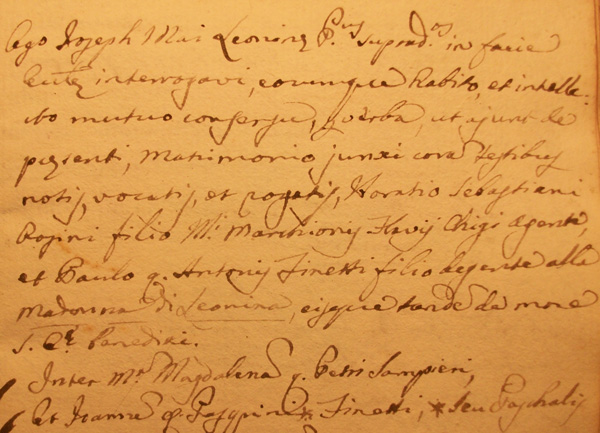 Ego Joseph Mar: Leonini P.us suprad.us in facie
Eccl.æ interrogavi, eorumque habito, et intelle-
cto mutuo consensu, p verba, ut ajunt de
præsenti, Matrimonio junxi corā testibus
notis, vocatis, et rogatis, Horatio Sebastiani
Rosini filio Ill.mi Marchionis Flavij Chigi Agente,
et Paulo q. Antonij Finetti filio degente alla
Madonna di Leonina, eisque tandē de more
S. E.æ benedixi.
Inter M.am Magdalenā q. Petri Sampieri,
Et Joannē q. Pasquini * Finetti, * seu Paschalis